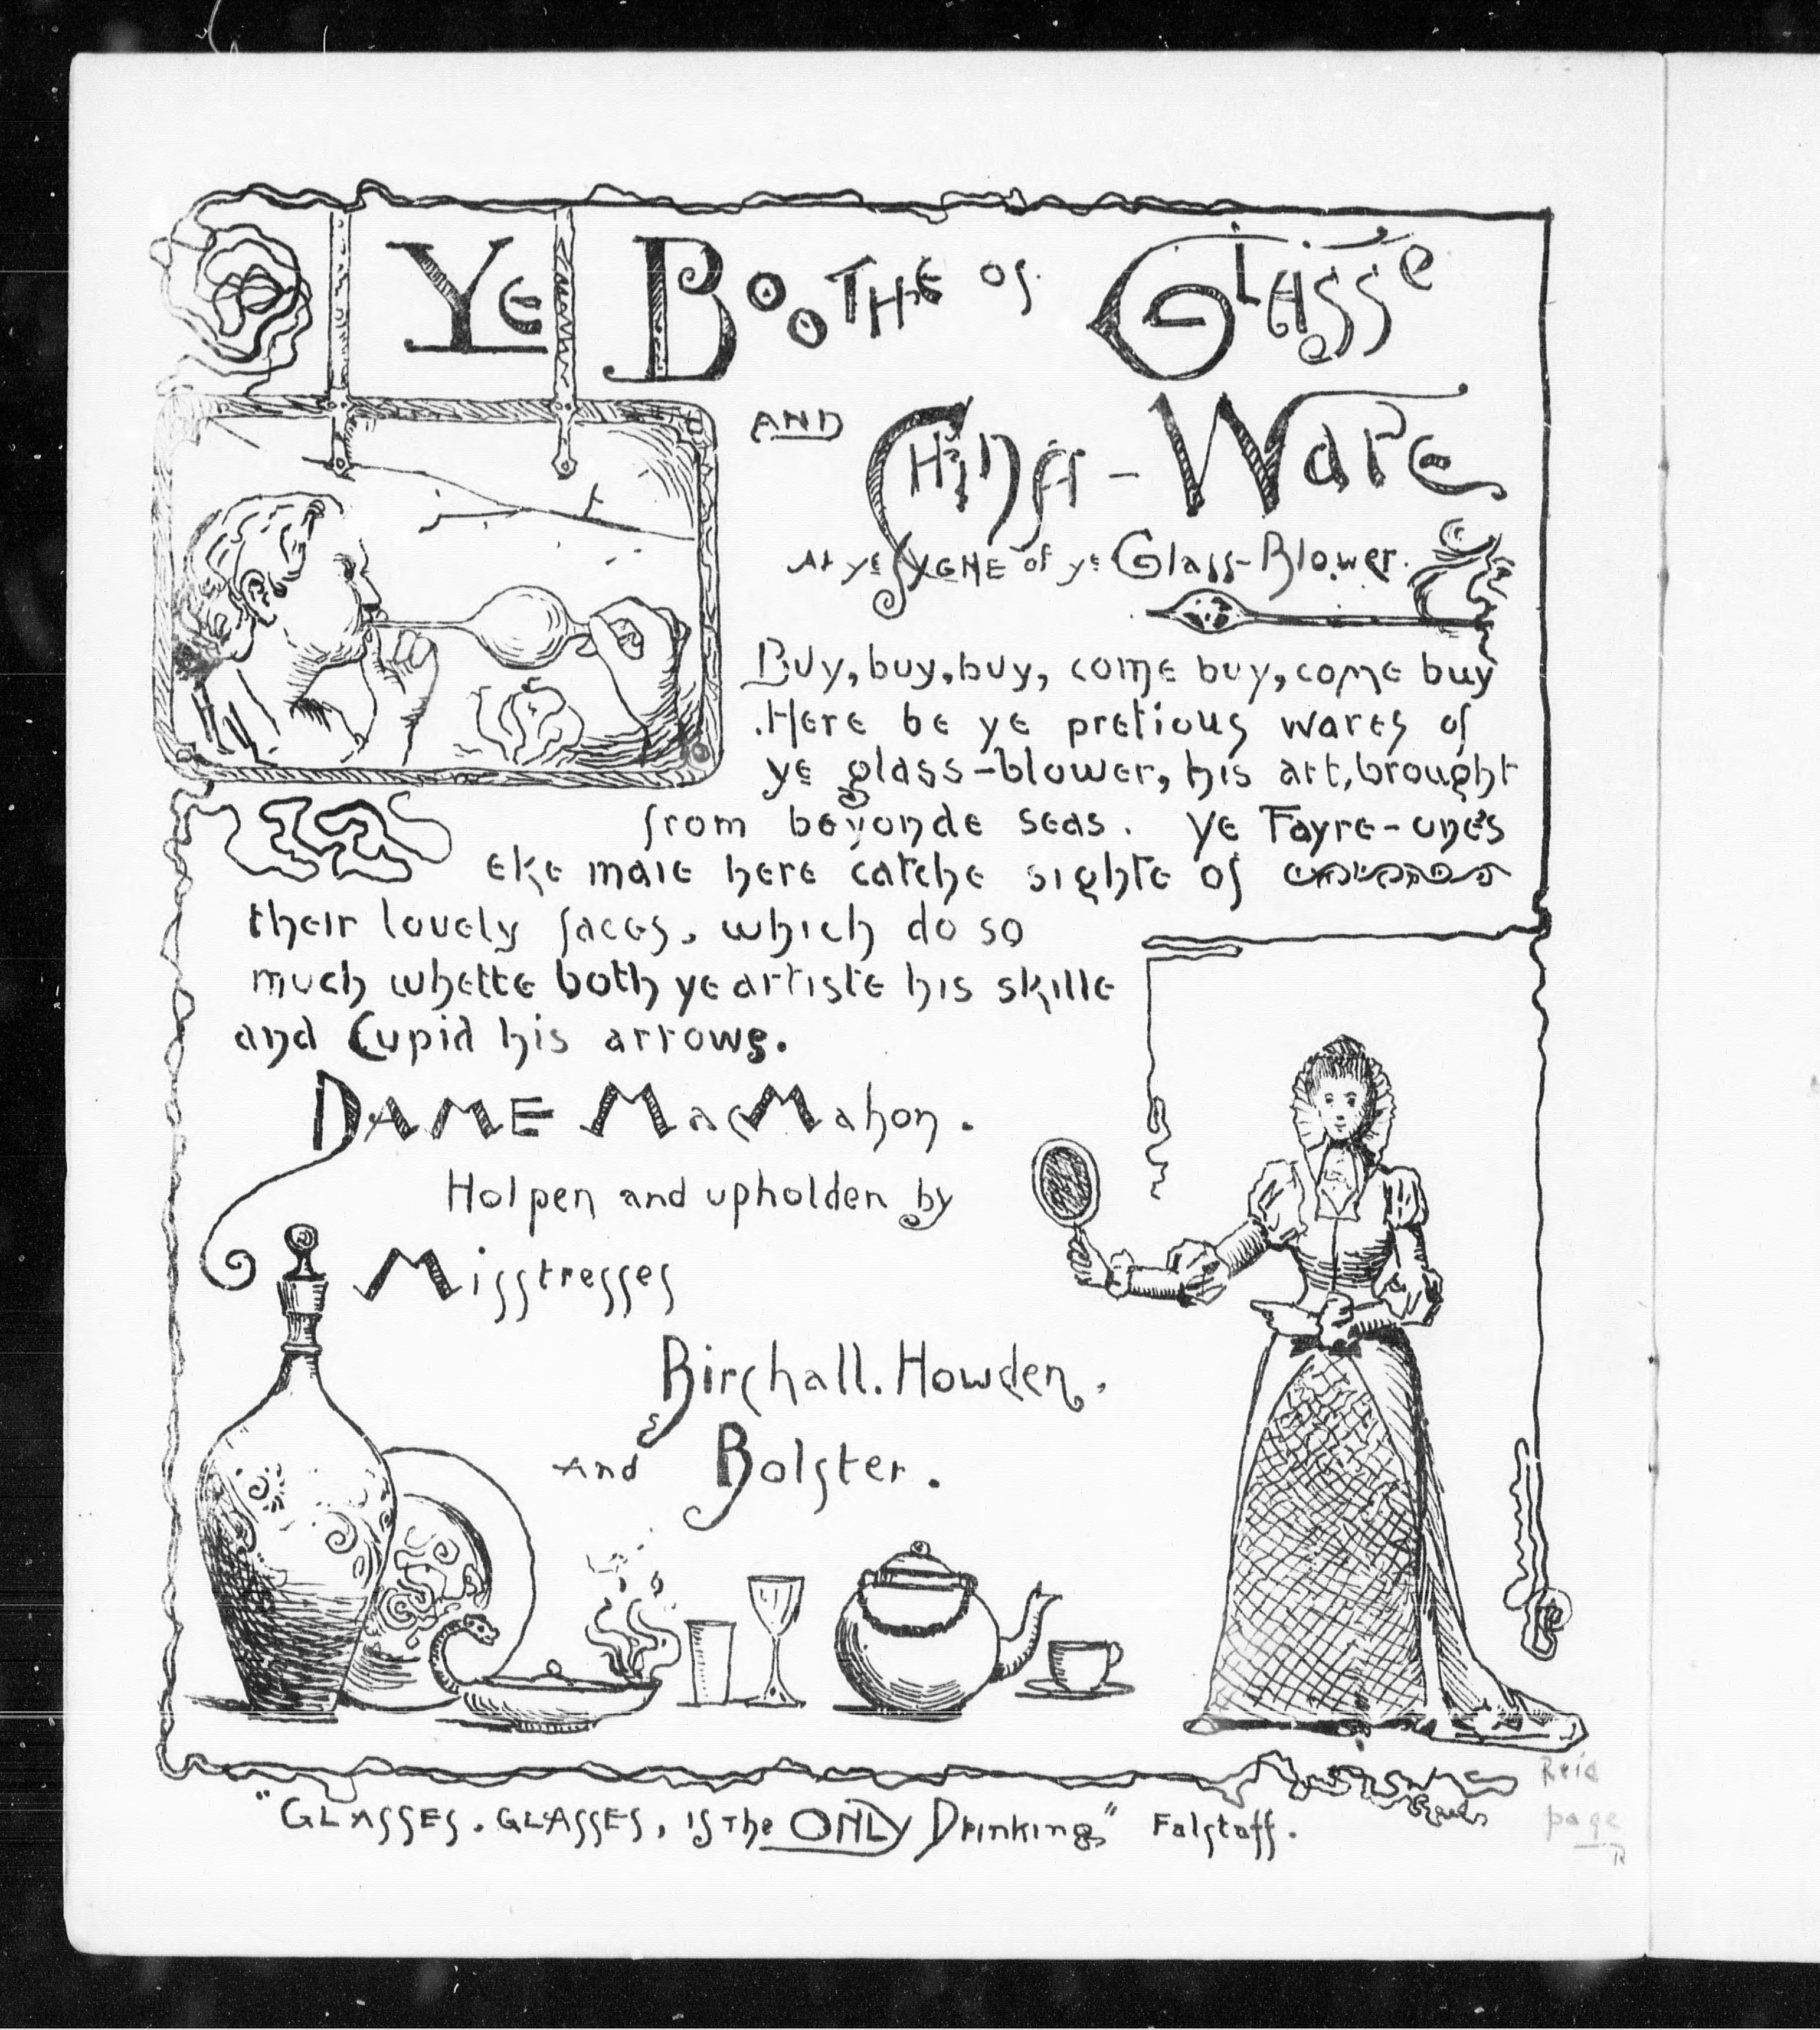 Ye Boothe of Glasse
AND China-Ware
At ye Sygne of ye Glass-Blower.
Buy, buy, buy, come buy, come buy
Here be ye pretious wares of
ye glass-blower, his art, brought
from beyonde seas. Ye Fayre-ones
eke maie here catche sighte of
their lovely faces, which do so
much whette both ye artiste his skille
and Cupid his arrows.
DAME MacMahon.
Holpen and upholden by
Misstresses
Birchall. Howden.
And Bolster.
"GLASSES. GLASSES, is the ONLY Drinking" Falstaff.
Reid
page
R